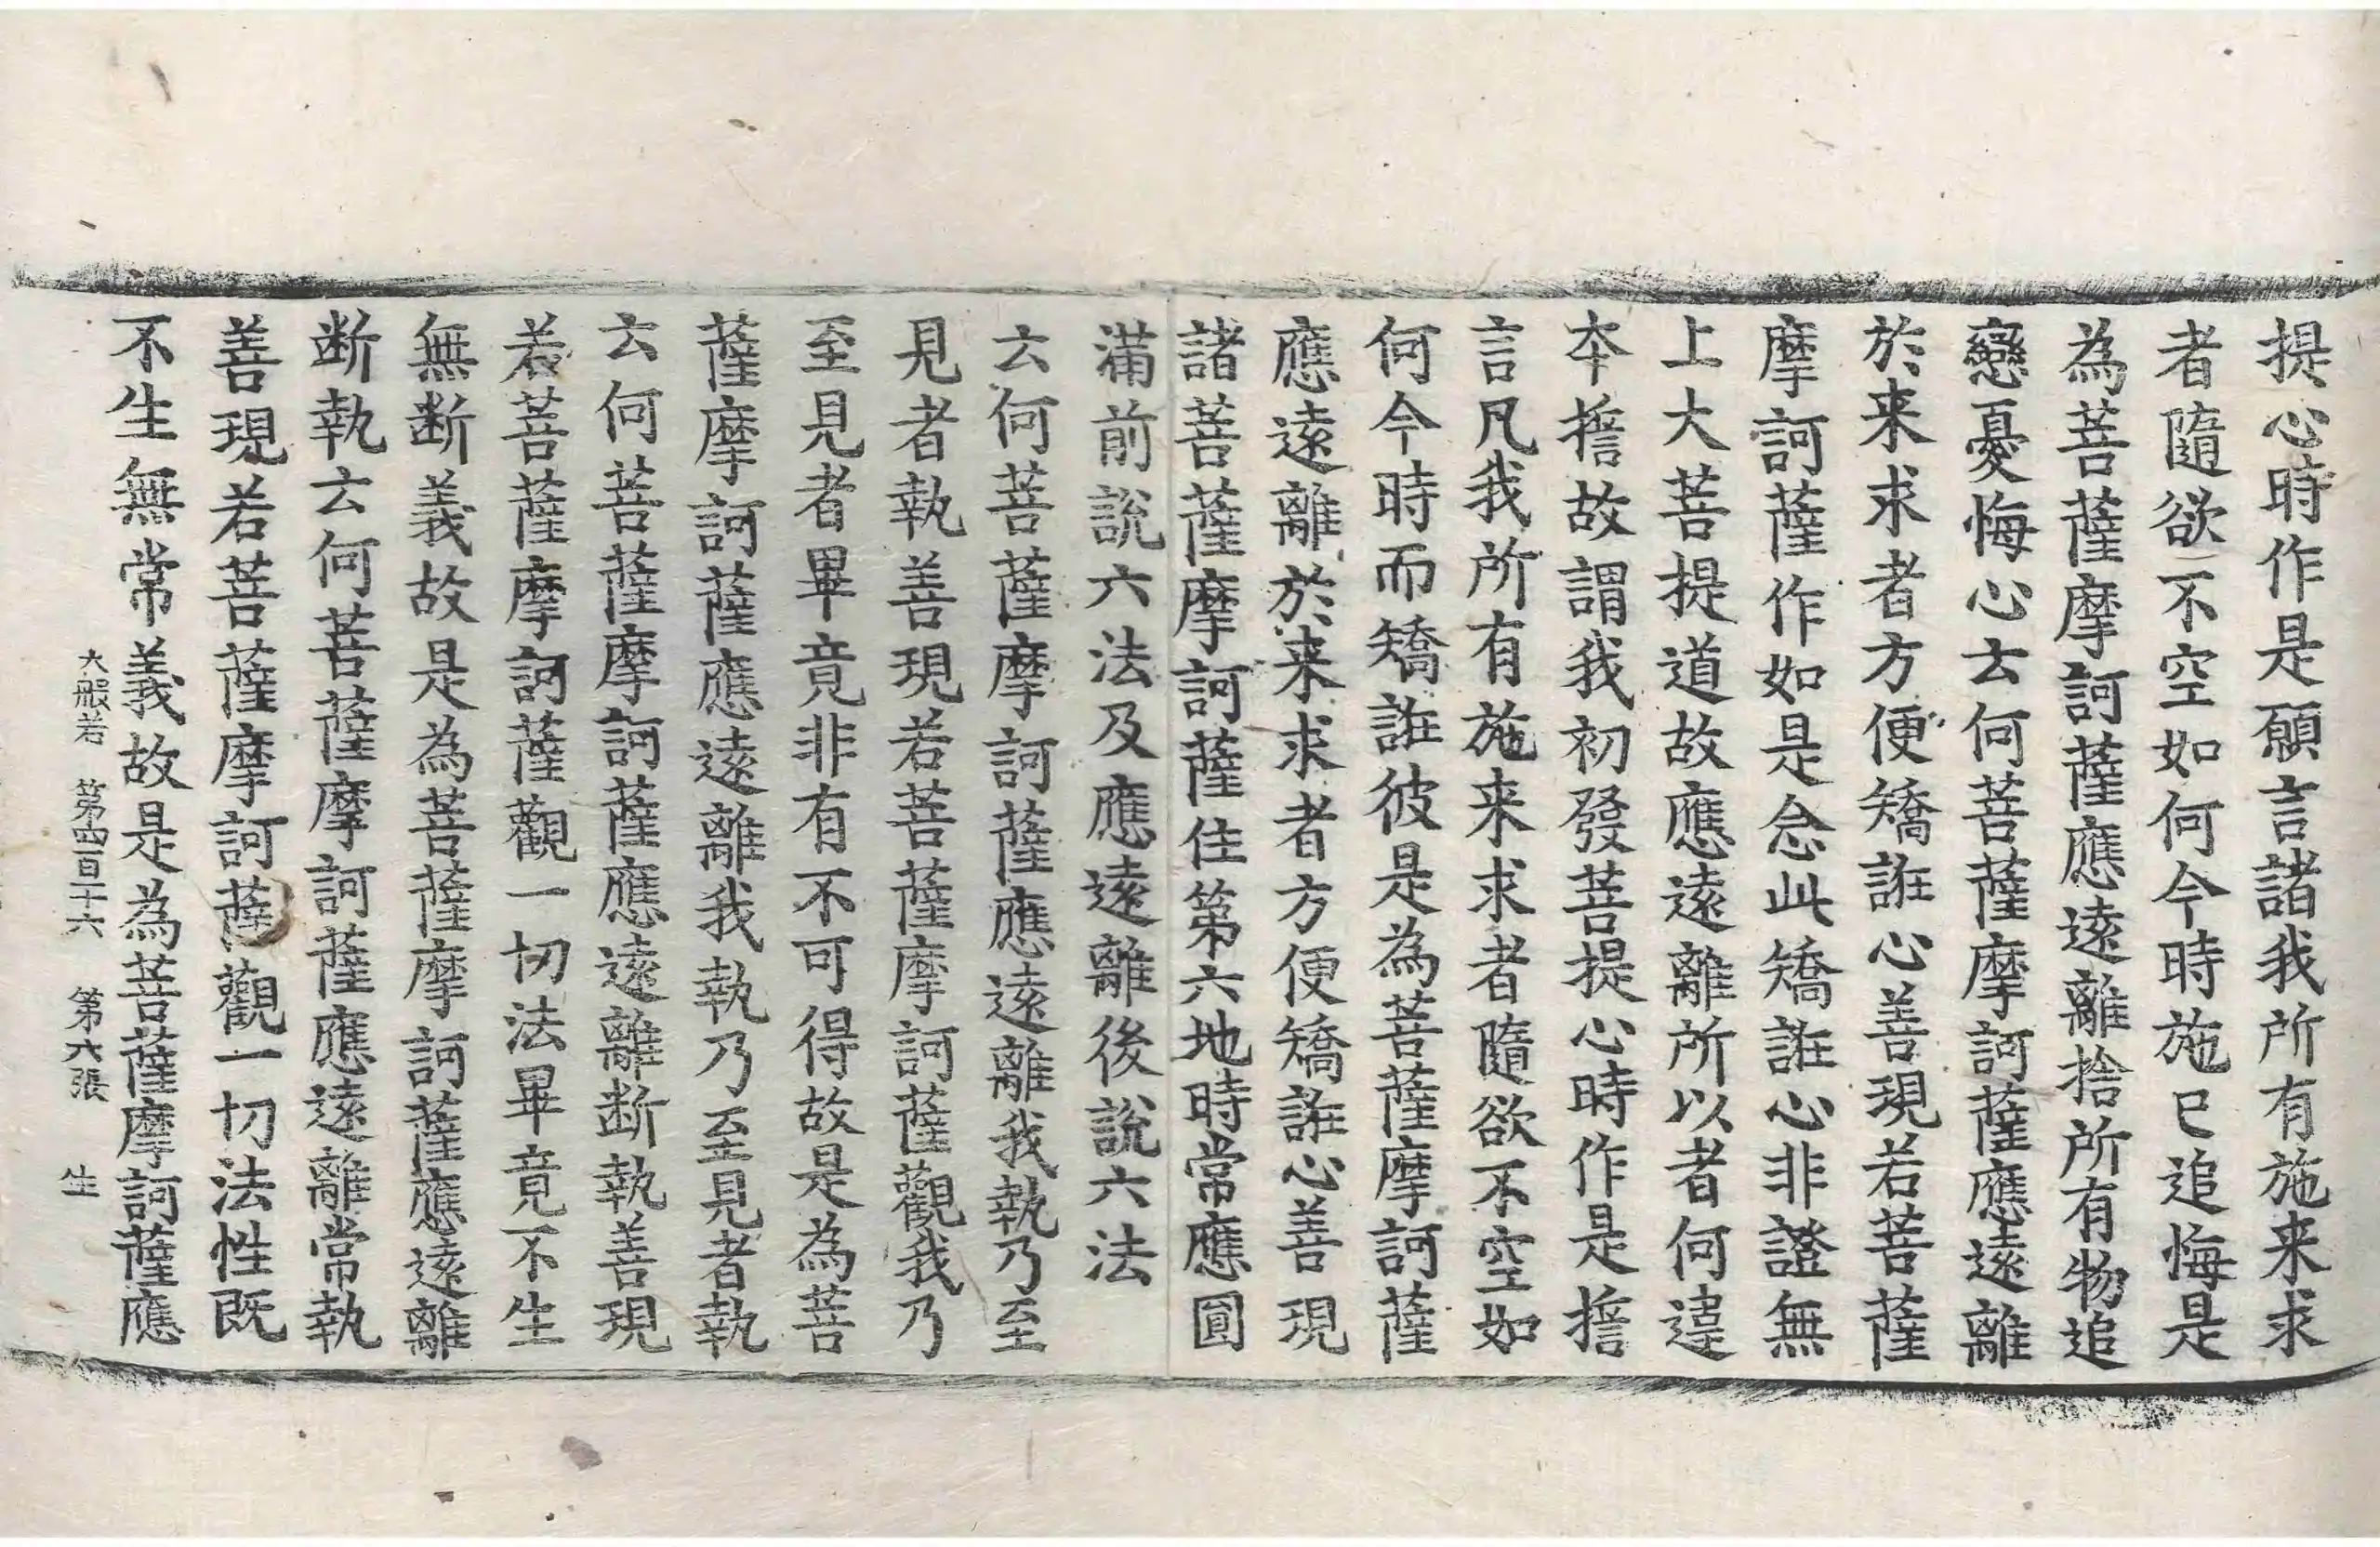 提心時作是願言諸我所有施来求
者隨欲不空如何今時施已追悔是
為菩薩摩訶薩應遠離捨所有物追
戀憂悔心云何菩薩摩訶薩應遠離
於来求者方便矯誑心善現若菩薩
摩訶薩作如是念此矯誑心非證無
上大菩提道故應遠離所以者何違
本擔故謂我初發菩提心時作是擔
言凡我所有施来求者隨欲不空如
何今時而矯誑彼是為菩薩摩訶薩
應遠離於来求者方便矯誑心善現
諸菩薩摩訶薩住第六地時常應圓
滿前說六法及應遠離後說六法
云何菩薩摩訶薩應遠離我執乃至
見者執善現若菩薩摩訶薩觀我乃
至見者畢竟非有不可得故是為菩
薩摩訶薩應遠離我執乃至見者執
云何菩薩摩訶薩應遠離断執善現
若菩薩摩訶薩觀一切法畢竟不生
無断義故是為菩薩摩訶薩應遠離
断執云何菩薩摩訶薩應遠離常執
善現若菩薩摩訶薩觀一切法性既
不生無常義故是為菩薩摩訶薩應
大般若 第四百十六 第六張 生